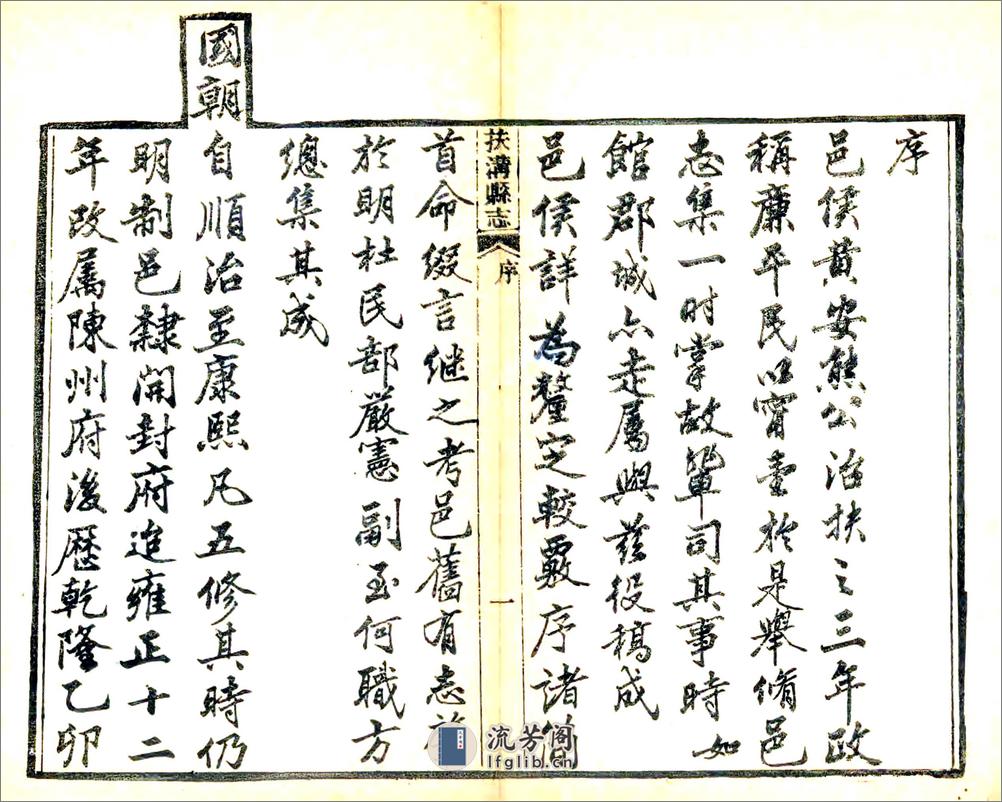 序
邑侯黄安熊公治扶之三年政
稱廉平民以寗壹於是舉脩邑
志集一时掌故輩司其事時如
館郡城亦走屬與茲役稿成
邑侯詳為釐定較覈序諸簡
扶溝縣志 序 一
首命綴言继之考邑舊有志
於明杜民部嚴憲副至何職方
總集其成
國朝自順治至康熙凡五修其時仍
明制邑隸開封府迨雍正十二
年改屬陳州府後歷乾隆乙卯
流芳阁
lfglib.cn